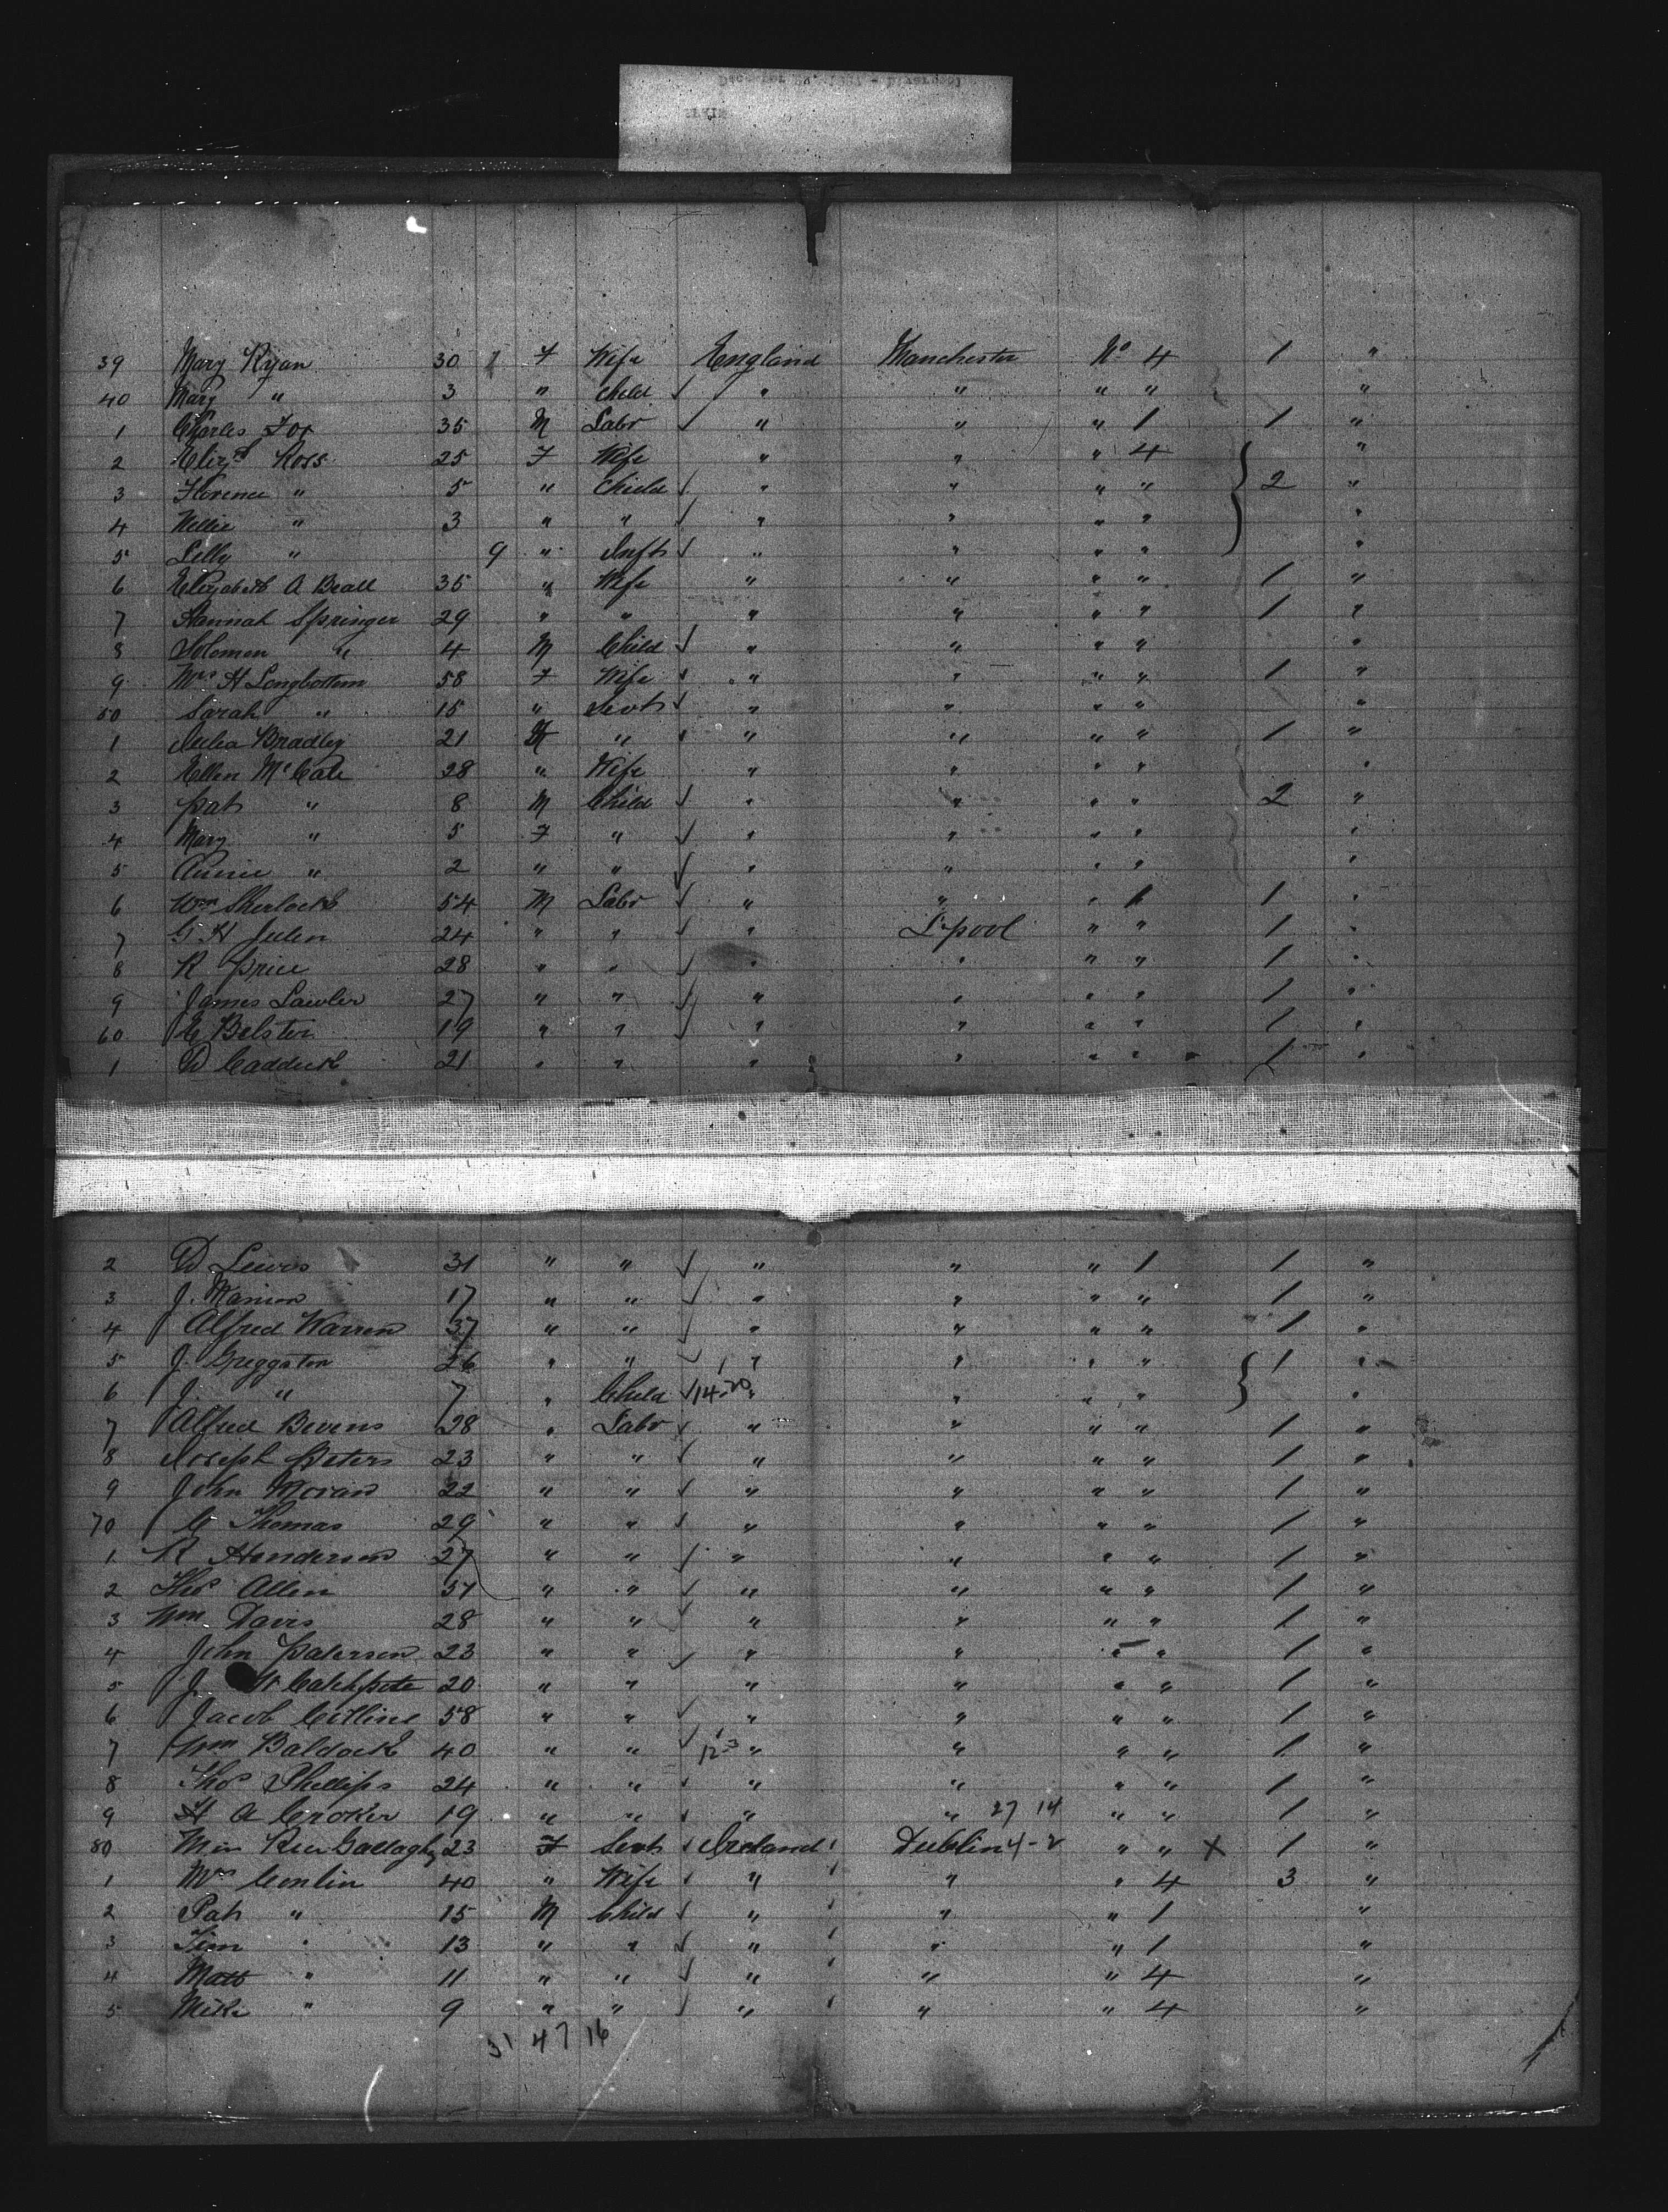 39 Mary Ryan 30 F Wife England Manchester No 4 1 "
40 Mary " 3 " child " " " " "
1 Charles Fox 35 M Labr " " " 1 1 "
2 Elizth Ross 25 F Wife " " " 4 "
3 Florence " 5 " Child " " " " 2 "
4 Nellie " 3 " " " " " " "
5 Lilly " 9 " Inft " " " " "
6 Elizabeth A Beall 35 " Wife " " " " 1 "
7 Hannah Springer 29 " " " " " " 1 "
8 Solomon " 4 M Child " " " " "
9 Mrs H Longbottom 58 F Wife " " " " 1 "
50 Sarah " 15 " Servt " " " " "
1 Julia Bradley 21 F " " " " " 1 "
2 Ellen McCale 28 " Wife " " " " "
3 Pat " 8 M Child " " " " 2 "
4 Mary " 5 F " " " " " "
5 Annie " 2 " " " " " " "
6 Wm Sherlock 54 M Labr " " " 1 1 "
7 G H Julen 24 " " " L'pool " " 1 "
8 R Price 28 " " " " " " 1 "
9 James Lawler 27 " " " " " " 1 "
60 E Belster 19 " " " " " " 1 "
1 D Cadduck 21 " " " " " " 1 "
2 D Lewis 31 " " " " " 1 1 "
3 J. Manion 17 " " " " " " 1 "
4 Alfred Warren 37 " " " " " " 1 "
5 J. Greggston 26 " " " " " " 1 "
6 J. " 7 " Child 14-20 " " " " "
7 Alfred Bevens 28 " Labr " " " " 1 "
8 Joseph Peters 23 " " " " " " 1 "
9 John Moran 22 " " " " " " 1 "
70 C Thomas 29 " " " " " " 1 "
1 R Henderson 27 " " " " " " 1 "
2 Thos Allen 57 " " " " " " 1 "
3 Wm Davis 28 " " " " " " 1 "
4 John Paterson 23 " " " " " " 1 "
5 J. 20 " " " " " " 1 "
6 Jacob Collins 58 " " " " " " 1 "
7 Wm Baldock 40 " " 12-3 " " " " 1 "
8 Thos Phillips 24 " " " " " " 1 "
9 H A Croker 19 " " " " 27 14 " " 1 "
80 Miss Gallagher 23 F Servt Ireland Dublin 4-2 " " X 1 "
1 Mrs Conlin 40 " Wife " " " 4 3 "
2 Pat " 15 M Child " " " 1 "
3 Tim " 13 " " " " " 1 "
4 Matt " 11 " " " " " 4 "
5 Mike " 9 " " " " " 4 "
31 47 16